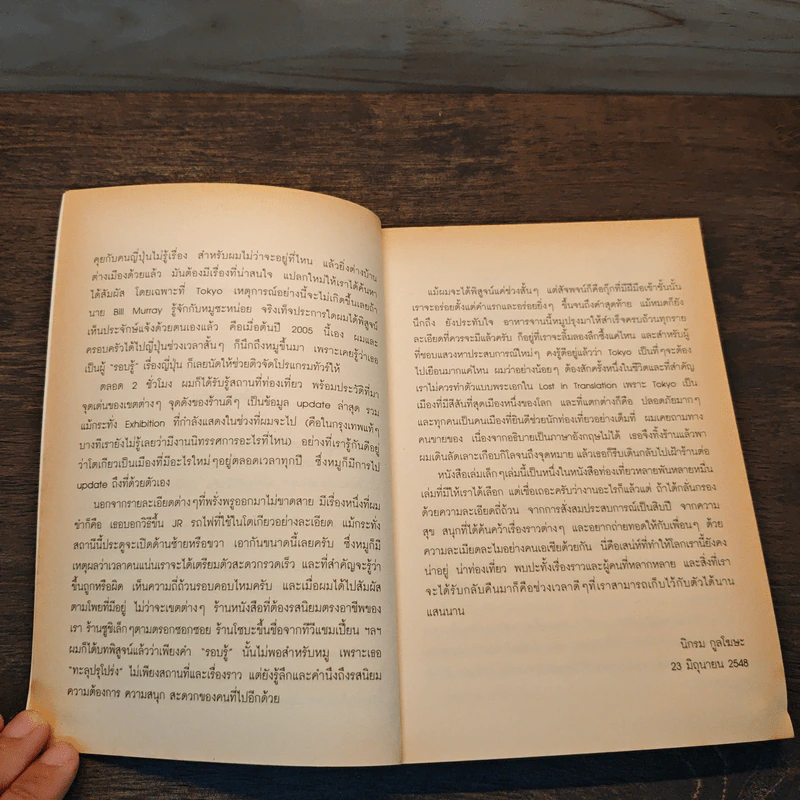 คุยกับคนญี่ปุ่นไม่รู้เรื่อง สำหรับผมไม่ว่าจะอยู่ที่ไหน แล้วยิ่งต่างบ้าน
ต่างเมืองด้วยแล้ว มันต้องมีเรื่องที่น่าสนใจ แปลกใหม่ให้เราได้ค้นหา
ได้สัมผัส โดยเฉพาะที่ Tokyo เหตุการณ์อย่างนี้จะไม่เกิดขึ้นเลยถ้า
นาย Bill Murray รู้จักกับหมูซะหน่อย จริงเท็จประการใดผมได้พิสูจน์
เห็นประจักษ์แจ้งด้วยตนเองแล้ว คือเมื่อต้นปี 2005 นี้เอง ผมและ
ครอบครัวได้ไปญี่ปุ่นช่วงเวลาสั้นๆ ก็นึกถึงหมูขึ้นมา เพราะเคยรู้ว่าเธอ
เป็นผู้ "รอบรู้" เรื่องญี่ปุ่น ก็เลยนัดให้ช่วยติวจัดโปรแกรมทัวร์ให้
ตลอด 2 ชั่วโมง ผมก็ได้รับรู้สถานที่ท่องเที่ยว พร้อมประวัติที่มา
จุดเด่นของเขตต่างๆ จุดดังของร้านดีๆ เป็นข้อมูล update ล่าสุด รวม
แม้กระทั่ง Exhibition ที่กำลังแสดงในช่วงที่ผมจะไป (คือในกรุงเทพแท้ๆ
บางทีเรายังไม่รู้เลยว่ามีงานนิทรรศการอะไรที่ไหน) อย่างที่เรารู้กันดีอยู่
ว่าโตเกียวเป็นเมืองที่มีอะไรใหม่ๆอยู่ตลอดเวลาทุกปี ซึ่งหมูก็มีการไป
update ถึงที่ด้วยตัวเอง
นอกจากรายละเอียดต่างๆที่พรั่งพรูออกมาไม่ขาดสาย มีเรื่องหนึ่งที่ผม
ขำก็คือ เธอบอกวิธีขึ้น JR รถไฟที่ใช้ในโตเกียวอย่างละเอียด แม้กระทั่ง
สถานีนี้ประตูจะเปิดด้านซ้ายหรือขวา เอากันขนาดนี้เลยครับ ซึ่งหมูก็มี
เหตุผลว่าเวลาคนแน่นเราจะได้เตรียมตัวสะดวกรวดเร็ว และที่สำคัญจะรู้ว่า
ขึ้นถูกหรือผิด เห็นความถี่ถ้วนรอบคอบไหมครับ และเมื่อผมได้ไปสัมผัส
ตามโพยที่มีอยู่ ไม่ว่าจะเขตต่างๆ ร้านหนังสือที่ต้องรสนิยมตรงอาชีพของ
เรา ร้านซูชิเล็กๆตามตรอกซอกซอย ร้านโซบะขึ้นชื่อจากทีวีแชมเปี้ยน ฯลฯ
ผมก็ได้บทพิสูจน์แล้วว่าเพียงคำ "รอบรู้" นั้นไม่พอสำหรับหมู เพราะเธอ
"ทะลุปรุโปร่ง" ไม่เพียงสถานที่และเรื่องราว แต่ยังรู้ลึกและคำนึงถึงรสนิยม
ความต้องการ ความสนุก สะดวกของคนที่ไปอีกด้วย
แม้ผมจะได้พิสูจน์แค่ช่วงสั้นๆ แต่สัจพจน์ก็คือกุ๊กที่มีฝีมือเข้าขั้นนั้น
เราจะอร่อยตั้งแต่คำแรกและอร่อยยิ่งๆ ขึ้นจนถึงคำสุดท้าย แม้หมดก็ยัง
นึกถึง ยังประทับใจ อาหารจานนี้หมูปรุงมาให้สำเร็จครบถ้วนทุกราย
ละเอียดที่ควรจะมีแล้วครับ ก็อยู่ที่เราจะลิ้มลองลึกซึ้งแค่ไหน และสำหรับผู้
ที่ชอบแสวงหาประสบการณ์ใหม่ๆ คงรู้ดีอยู่แล้วว่า Tokyo เป็นที่ๆจะต้อง
ไปเยือนมากแค่ไหน ผมว่าอย่างน้อยๆ ต้องสักครั้งหนึ่งในชีวิตและที่สำคัญ
เราไม่ควรทำตัวแบบพระเอกใน Lost in Translation เพราะ Tokyo เป็น
เมืองที่มีสีสันที่สุดเมืองหนึ่งของโลก และที่แตกต่างก็คือ ปลอดภัยมากๆ
และทุกคนเป็นคนเมืองที่ยินดีช่วยนักท่องเที่ยวอย่างเต็มที่ ผมเคยถามทาง
คนขายของ เนื่องจากอธิบายเป็นภาษาอังกฤษไม่ได้ เธอจึงทิ้งร้านแล้วพา
ผมเดินลัดเลาะเกือบกิโลจนถึงจุดหมาย แล้วเธอก็รีบเดินกลับไปเฝ้าร้านต่อ
หนังสือเล่มเล็กๆเล่มนี้เป็นหนึ่งในหนังสือท่องเที่ยวหลายพันหลายหมื่น
เล่มที่มีให้เราได้เลือก แต่เชื่อเถอะครับว่างานอะไรก็แล้วแต่ ถ้าได้กลั่นกรอง
ด้วยความละเอียดถี่ถ้วน จากการสั่งสมประสบการณ์เป็นสิบปี จากความ
สุข สนุกที่ได้ค้นคว้าเรื่องราวต่างๆ และอยากถ่ายทอดให้กับเพื่อนๆ ด้วย
ความละเมียดละไมอย่างคนเอเชียด้วยกัน นี่คือเสน่ห์ที่ทำให้โลกเรานี้ยังคง
น่าอยู่ น่าท่องเที่ยว พบปะทั้งเรื่องราวและผู้คนที่หลากหลาย และสิ่งที่เรา
จะได้รับกลับคืนมาก็คือช่วงเวลาดีๆที่เราสามารถเก็บไว้กับตัวได้นาน
แสนนาน
นิกรม กูลโฆษะ
23 มิถุนายน 2548